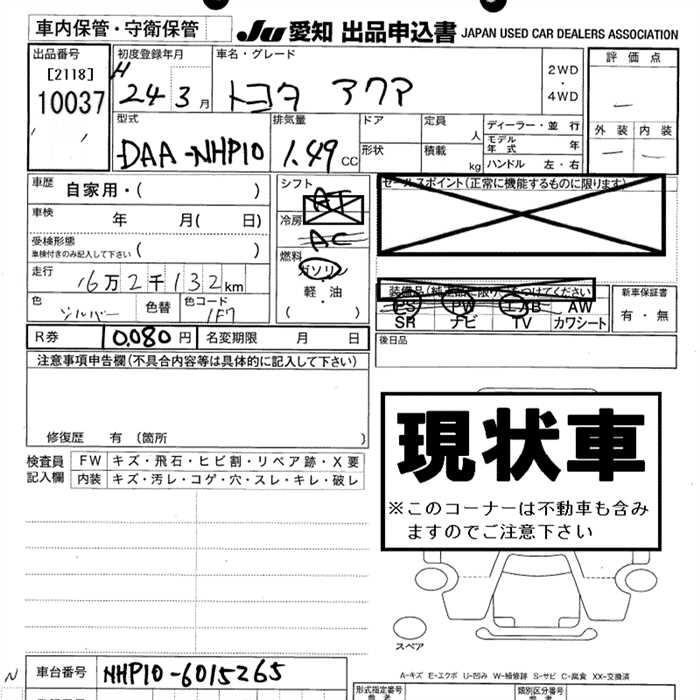 車内保管・守衛保管
JU 愛知 出品申込書 JAPAN USED CAR DEALERS ASSOCIATION
出品番号
[2118]
10037
初度登録年月
H 24 3月
車名・グレード
トヨタ アクア
2WD
・
4WD
評価点
外装 内装
型式
DAA-NHP10
排気量
1.49 CC
ドア
形状
定員 人
積載 kg
ディーラー・並行
モデル年式 年
ハンドル 左・右
車歴 自家用・( )
車検 年 月( 日)
受検形態
車検付きのみ記入して下さい ( )
走行 16万2千132km
色 シルバー 色替 色コード 1F7
シフト
AT
冷房
AC
燃料
ガソリン
・
軽・油
( )
セールスポイント(正常に機能するものに限ります)
装備品(純正品に限り○をつけてください)
PS PW エアB AW
SR ナビ TV カワシート
新車保証書
有・無
R券 10,080円 名変期限 月 日
後日品
注意事項申告欄(不具合内容等は具体的に記入して下さい)
修復歴 有 (箇所 )
検査員記入欄
FW キズ・飛石・ヒビ割・リペア跡・X要
内装 キズ・汚レ・コゲ・穴・スレ・キレ・破レ
現状車
※このコーナーは不動車も含み
ますのでご注意下さい
スペア
A-キズ E-エクボ U-凹み W-補修跡 S-サビ C-腐食 XX-交換済
N 車台番号 NHP10-6015265
形式指定番号
類別区分番号